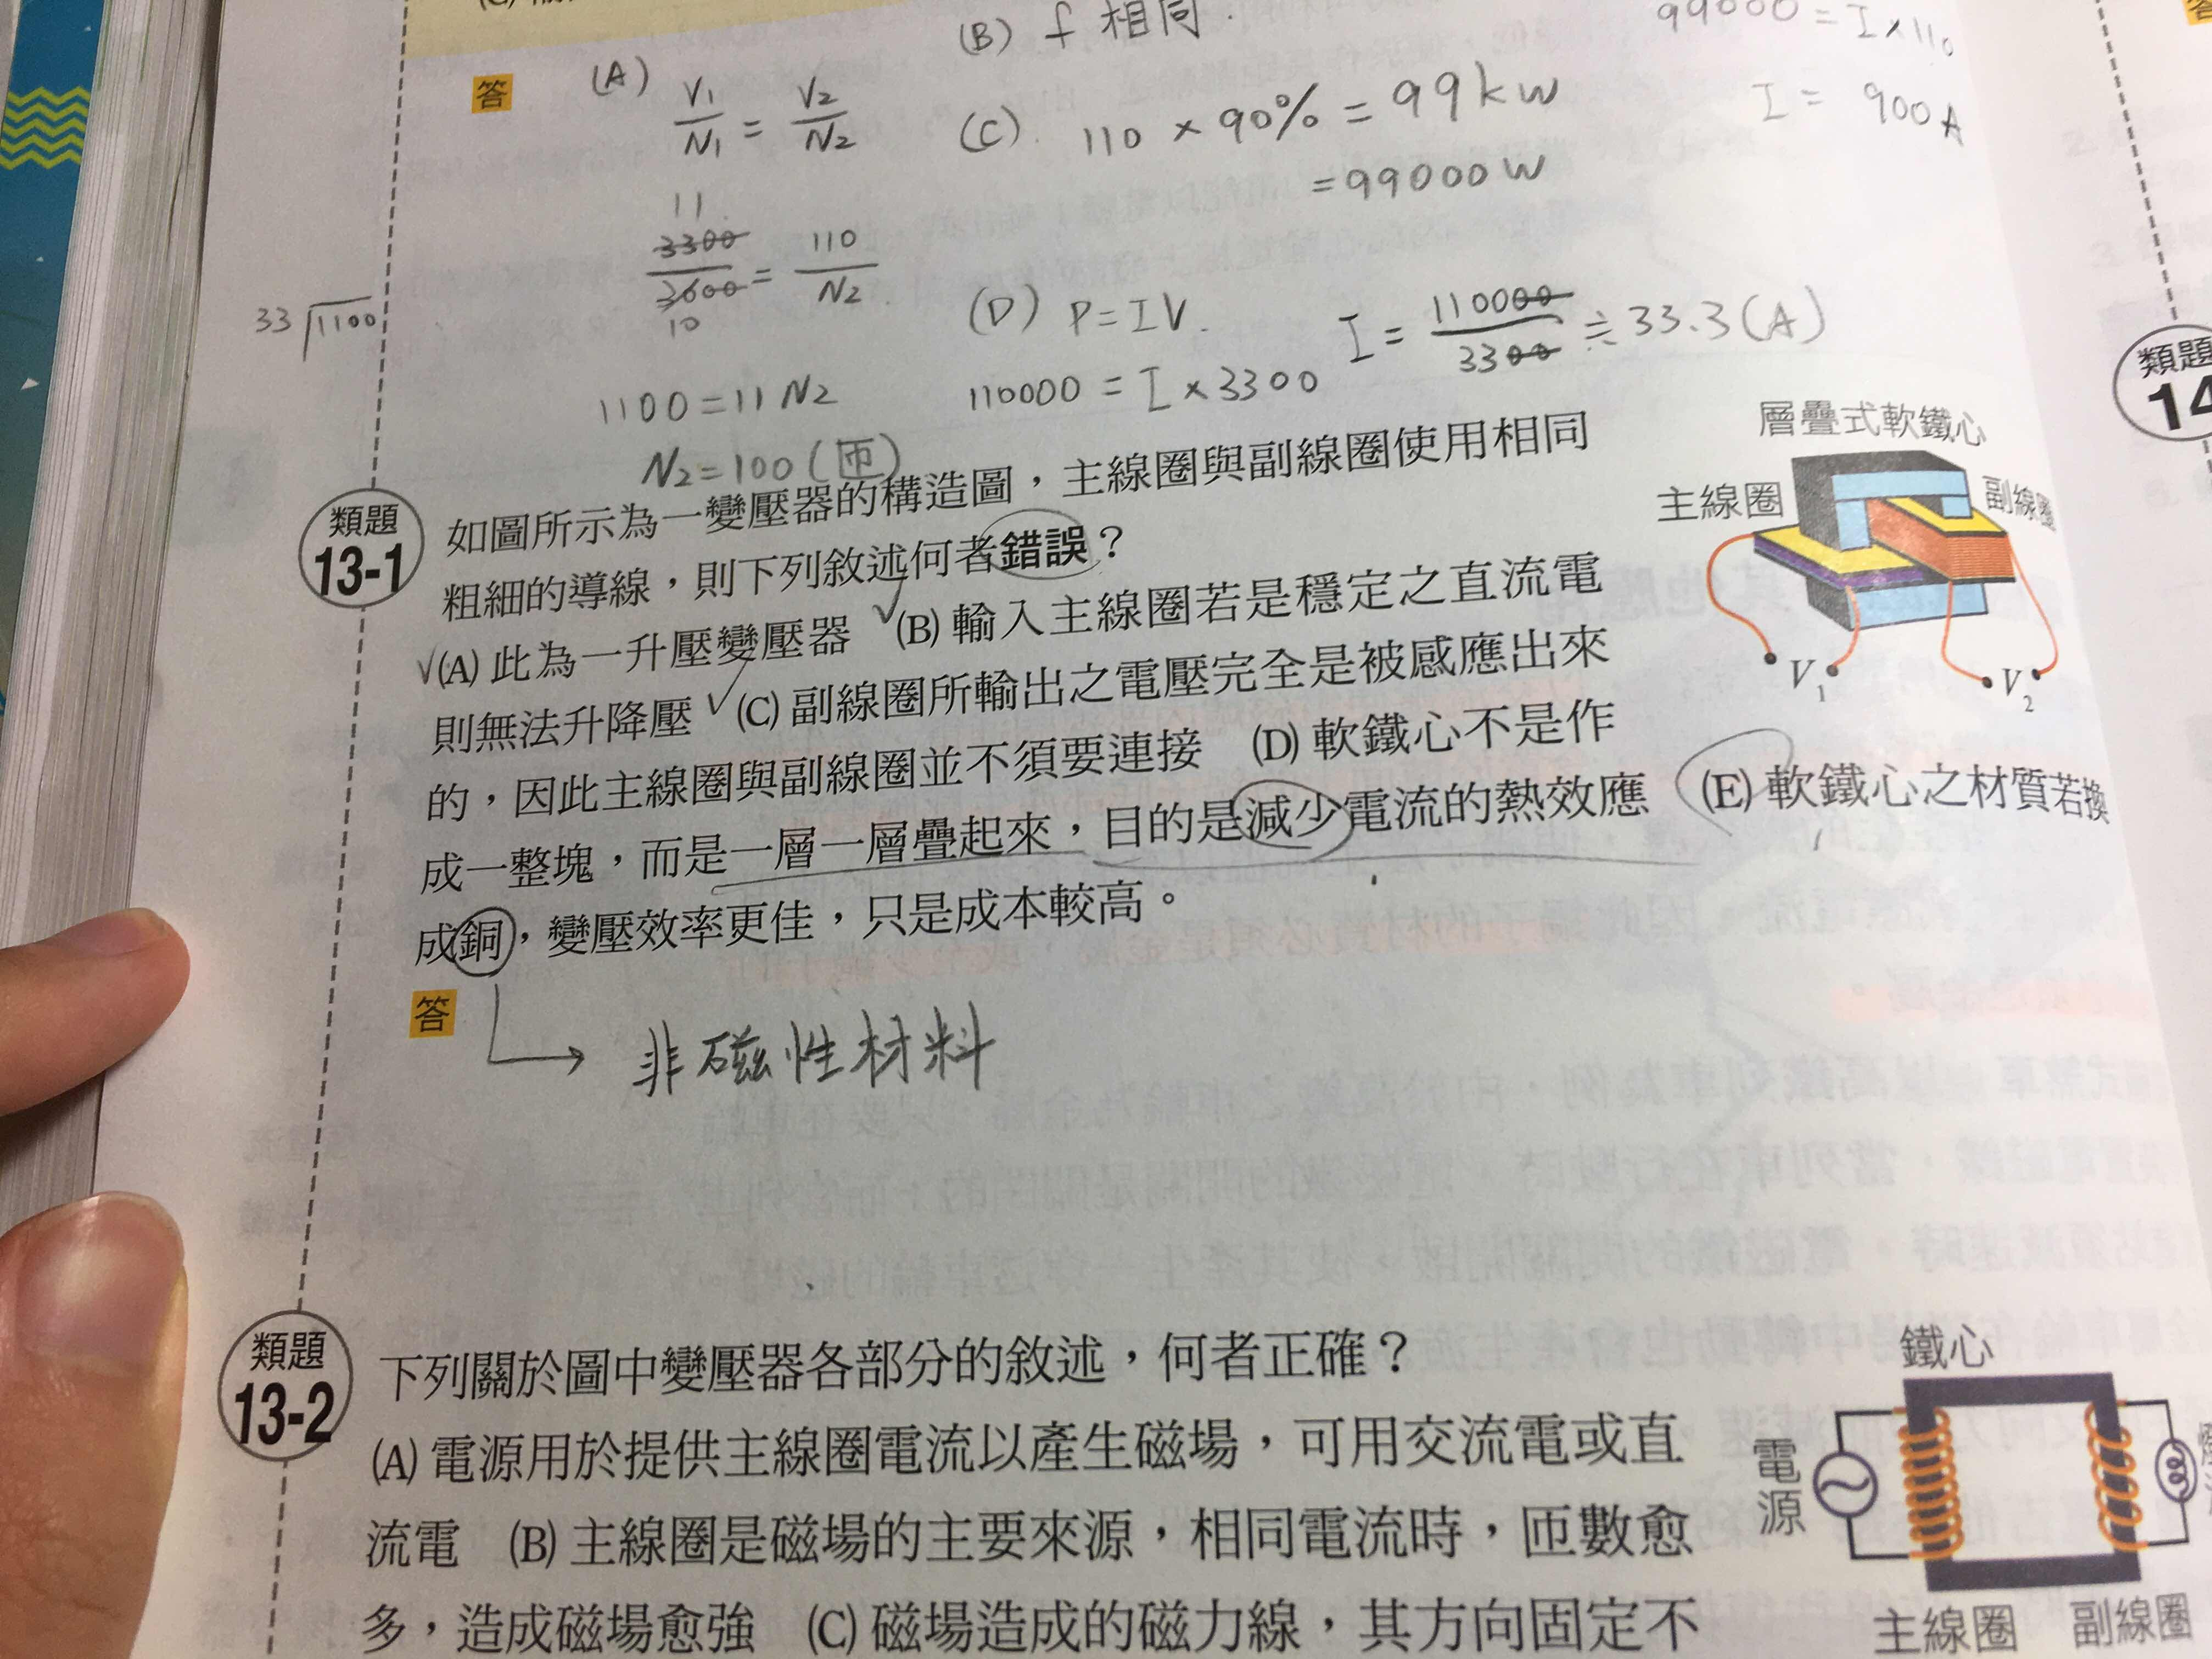 (B) f 相同.
99000 = I×110
答
(A)
V₁/N₁ = V₂/N₂
(C). 110 × 90% = 99kw
= 99000 W
I = 900A
11
3300/3600 = 110/N₂
10
33 1100
(D) P=IV.
I = 110000/3300 ≒ 33.3(A)
1100=11 N₂
110000 = I×3300
N₂=100(匝)
類題
13-1
如圖所示為一變壓器的構造圖，主線圈與副線圈使用相同
粗細的導線，則下列敘述何者錯誤？
(A) 此為一升壓變壓器 (B) 輸入主線圈若是穩定之直流電
則無法升降壓 (C) 副線圈所輸出之電壓完全是被感應出來
的，因此主線圈與副線圈並不須要連接 (D) 軟鐵心不是作
成一整塊，而是一層一層疊起來，目的是減少電流的熱效應 (E) 軟鐵心之材質若換
成銅，變壓效率更佳，只是成本較高。
層疊式軟鐵心
主線圈
副線圈
V₁
V₂
答
非磁性材料
類題
13-2
下列關於圖中變壓器各部分的敘述，何者正確？
(A) 電源用於提供主線圈電流以產生磁場，可用交流電或直
流電 (B) 主線圈是磁場的主要來源，相同電流時，匝數愈
多，造成磁場愈強 (C) 磁場造成的磁力線，其方向固定不
鐵心
電源
主線圈
副線圈
類題
14